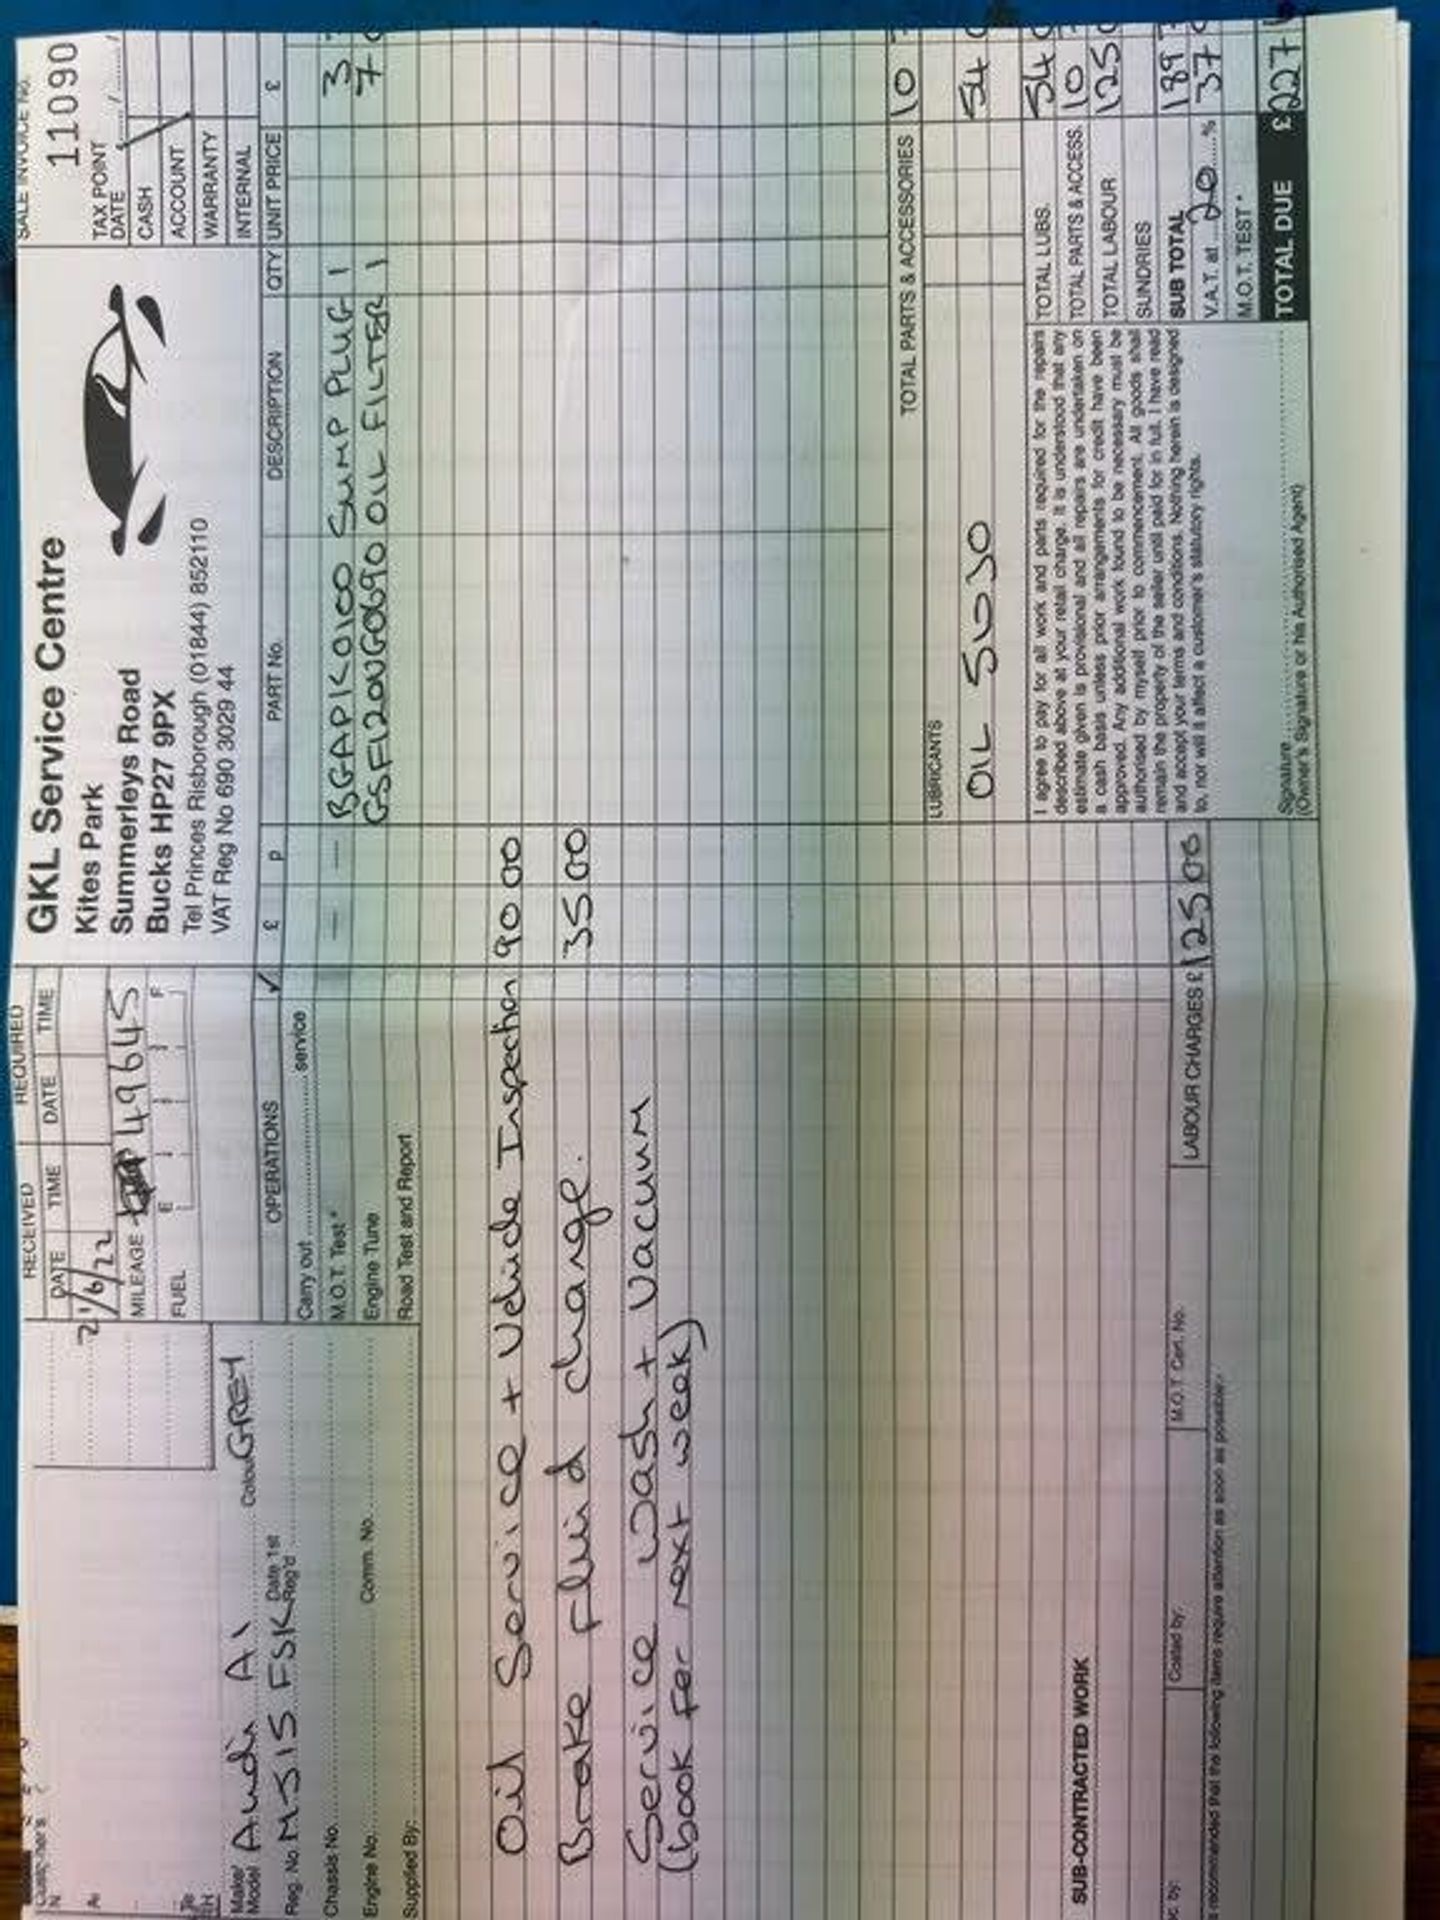 Customer's
RECEIVED REQUIRED
DATE TIME DATE TIME
21/6/22
MILEAGE 49645
FUEL E F
GKL Service Centre
Kites Park
Summerleys Road
Bucks HP27 9PX
Tel Princes Risborough (01844) 852110
VAT Reg No 690 3029 44
SALE INVOICE No.
11090
TAX POINT
DATE
CASH
ACCOUNT
WARRANTY
INTERNAL
Make/
Model Audi A1 Colour GREY
Reg. No. MJ15 FSK Date 1st Reg'd
Chassis No.
Engine No. Comm. No.
Supplied By:
OPERATIONS ✓ £ p
Carry out service
M.O.T. Test *
Engine Tune
Road Test and Report
Oil Service + Vehicle Inspection 90 00
Brake Fluid change. 35 00
Service wash + Vacuum
(book for next week)
SUB-CONTRACTED WORK
Costed by: M.O.T. Cert. No. LABOUR CHARGES £ 125 00
recommended that the following items require attention as soon as possible:-
PART No. DESCRIPTION QTY UNIT PRICE £
BGAPK0100 SUMP PLUG 1 3
GSF120VG0690 OIL FILTER 1 7
TOTAL PARTS & ACCESSORIES 10
LUBRICANTS
OIL 5W30 54
I agree to pay for all work and parts required for the repairs
described above at your retail charge. It is understood that any
estimate given is provisional and all repairs are undertaken on
a cash basis unless prior arrangements for credit have been
approved. Any additional work found to be necessary must be
authorised by myself prior to commencement. All goods shall
remain the property of the seller until paid for in full. I have read
and accept your terms and conditions. Nothing herein is designed
to, nor will it affect a customer's statutory rights.
Signature
(Owner's Signature or his Authorised Agent)
TOTAL LUBS. 54
TOTAL PARTS & ACCESS. 10
TOTAL LABOUR 125
SUNDRIES
SUB TOTAL 189
V.A.T. at 20 % 37
M.O.T. TEST *
TOTAL DUE £ 227